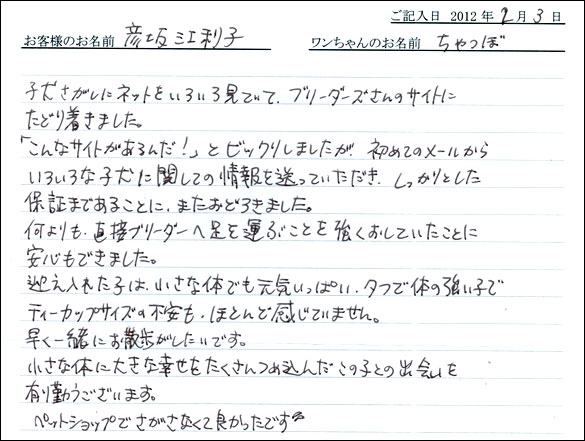 ご記入日 2012 年 2 月 3 日
お客様のお名前 彦坂 江利子 ワンちゃんのお名前 ちゃつぼ
子犬さがしにネットをいろいろ見ていて、ブリーダーズさんのサイトに
たどり着きました。
「こんなサイトがあるんだ!」とビックリしましたが、初めてのメールから
いろいろな子犬に関しての情報を送っていただき、しっかりとした
保証まであることに、またおどろきました。
何よりも、直接ブリーダーへ足を運ぶことを強くおしていたことに
安心もできました。
迎え入れた子は、小さな体でも元気いっぱい、タフで体の強い子で
ティーカップサイズの不安も、ほとんど感じていません。
早く一緒にお散歩がしたいです。
小さな体に大きな幸せをたくさんつめ込んだこの子との出会いを
有り勤うございます。
ペットショップでさがさなくて良かったです